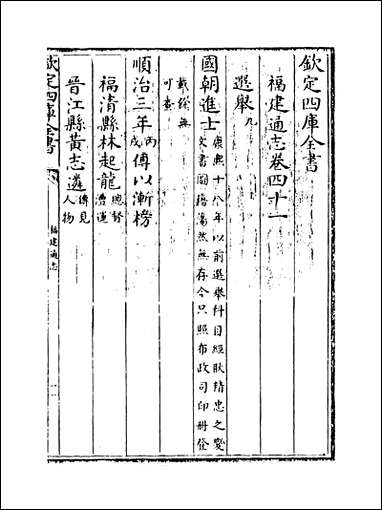 欽定四庫全書
福建通志卷四十一
選舉九
國朝進士康熙十八年以前選舉科目經耿精忠之變
文書圖籍蕩然無存今只照布政司印冊登
載餘無
可查
順治三年丙戌傅以漸榜
福清縣林起龍總督漕運
晉江縣黃志遴傳見人物
欽定四庫全書 福建通志 一